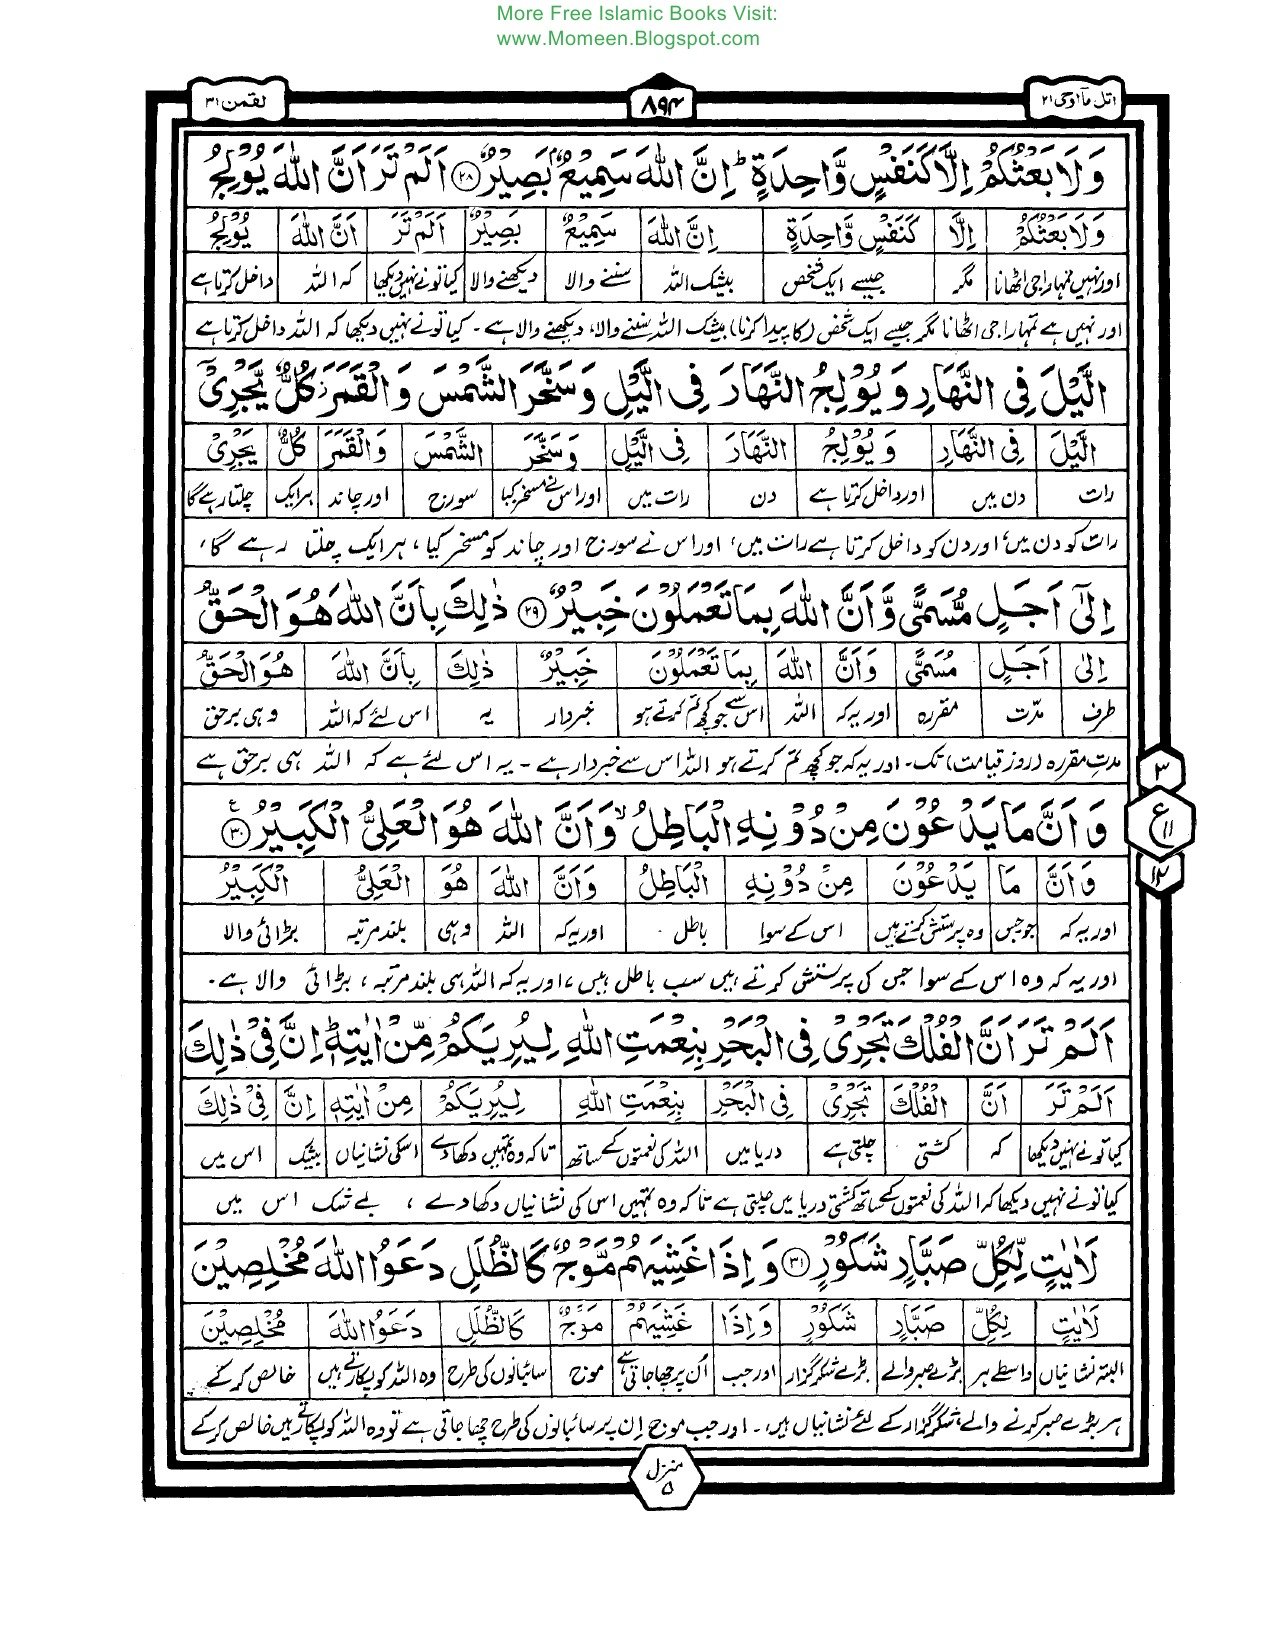 More Free Islamic Books Visit:
www.Momeen.Blogspot.com
اتل مآ اوحی ۲۱
۸۹۴
لقمن ۳۱
وَلَا بَعْثُكُمْ اِلَّا كَنَفْسٍ وَّاحِدَةٍ ؕ اِنَّ اللّٰهَ سَمِيْعٌۢ بَصِيْرٌ ﴿۲۸﴾ اَلَمْ تَرَ اَنَّ اللّٰهَ يُوْلِجُ
وَلَا بَعْثُكُمْ اِلَّا كَنَفْسٍ وَّاحِدَةٍ اِنَّ اللّٰهَ سَمِيْعٌ بَصِيْرٌ اَلَمْ تَرَ اَنَّ اللّٰهَ يُوْلِجُ
اور نہیں تمہارا جی اٹھانا مگر جیسے ایک شخص بیشک اللہ سننے والا دیکھنے والا کیا تو نے نہیں دیکھا کہ اللہ داخل کرتا ہے
اور نہیں ہے تمہارا جی اٹھانا مگر جیسے ایک شخص (کا پیدا کرنا) بیشک اللہ سننے والا، دیکھنے والا ہے۔ کیا تو نے نہیں دیکھا کہ اللہ داخل کرتا ہے
الَّيْلَ فِی النَّهَارِ وَيُوْلِجُ النَّهَارَ فِی الَّيْلِ وَسَخَّرَ الشَّمْسَ وَالْقَمَرَ ؗ كُلٌّ يَّجْرِیْۤ
الَّيْلَ فِی النَّهَارِ وَيُوْلِجُ النَّهَارَ فِی الَّيْلِ وَسَخَّرَ الشَّمْسَ وَالْقَمَرَ كُلٌّ يَجْرِیْ
رات دن میں اور داخل کرتا ہے دن رات میں اور اس نے مسخر کیا سورج اور چاند ہر ایک چلتا رہے گا
رات کو دن میں، اور دن کو داخل کرتا ہے رات میں، اور اس نے سورج اور چاند کو مسخر کیا، ہر ایک چلتا رہے گا،
اِلٰۤی اَجَلٍ مُّسَمًّی وَّاَنَّ اللّٰهَ بِمَا تَعْمَلُوْنَ خَبِيْرٌ ﴿۲۹﴾ ذٰلِكَ بِاَنَّ اللّٰهَ هُوَ الْحَقُّ
اِلٰی اَجَلٍ مُسَمًّی وَاَنَّ اللّٰهَ بِمَا تَعْمَلُوْنَ خَبِيْرٌ ذٰلِكَ بِاَنَّ اللّٰهَ هُوَ الْحَقُّ
طرف مدّت مقررہ اور یہ کہ اللہ اس سے جو کچھ تم کرتے ہو خبردار یہ اس لئے کہ اللہ وہی برحق
مدتِ مقررہ (روزِ قیامت) تک۔ اور یہ کہ جو کچھ تم کرتے ہو اللہ اس سے خبردار ہے۔ یہ اس لئے ہے کہ اللہ ہی برحق ہے
وَاَنَّ مَا يَدْعُوْنَ مِنْ دُوْنِهِ الْبَاطِلُ ۙ وَاَنَّ اللّٰهَ هُوَ الْعَلِیُّ الْكَبِيْرُ ﴿۳۰﴾ ع
وَاَنَّ مَا يَدْعُوْنَ مِنْ دُوْنِهِ الْبَاطِلُ وَاَنَّ اللّٰهَ هُوَ الْعَلِیُّ الْكَبِيْرُ
اور یہ کہ جو جس وہ پرستش کرتے ہیں اس کے سوا باطل اور یہ کہ اللہ وہی بلند مرتبہ بڑائی والا
اور یہ کہ وہ اس کے سوا جس کی پرستش کرتے ہیں سب باطل ہیں، اور یہ کہ اللہ ہی بلند مرتبہ، بڑائی والا ہے۔
۳
ع ۱۱
۱۲
اَلَمْ تَرَ اَنَّ الْفُلْكَ تَجْرِیْ فِی الْبَحْرِ بِنِعْمَتِ اللّٰهِ لِيُرِيَكُمْ مِّنْ اٰيٰتِهٖ ؕ اِنَّ فِیْ ذٰلِكَ
اَلَمْ تَرَ اَنَّ الْفُلْكَ تَجْرِیْ فِی الْبَحْرِ بِنِعْمَتِ اللّٰهِ لِيُرِيَكُمْ مِنْ اٰيٰتِهٖ اِنَّ فِیْ ذٰلِكَ
کیا تو نے نہیں دیکھا کہ کشتی چلتی ہے دریا میں اللہ کی نعمتوں کے ساتھ تاکہ وہ تمہیں دکھا دے اسکی نشانیاں بیشک اس میں
کیا تو نے نہیں دیکھا کہ اللہ کی نعمتوں کے ساتھ کشتی دریا میں چلتی ہے تاکہ وہ تمہیں اس کی نشانیاں دکھا دے، بے شک اس میں
لَاٰيٰتٍ لِّكُلِّ صَبَّارٍ شَكُوْرٍ ﴿۳۱﴾ وَاِذَا غَشِيَهُمْ مَّوْجٌ كَالظُّلَلِ دَعَوُا اللّٰهَ مُخْلِصِيْنَ
لَاٰيٰتٍ لِكُلِّ صَبَّارٍ شَكُوْرٍ وَاِذَا غَشِيَهُمْ مَوْجٌ كَالظُّلَلِ دَعَوُا اللّٰهَ مُخْلِصِيْنَ
البتہ نشانیاں واسطے ہر بڑے صبر والے بڑے شکرگزار اور جب اُن پر چھا جاتی ہے موج سائبانوں کی طرح وہ اللہ کو پکارتے ہیں خالص کرکے
ہر بڑے صبر کرنے والے، شکرگزار کے لئے نشانیاں ہیں۔ اور جب موج اِن پر سائبانوں کی طرح چھا جاتی ہے تو وہ اللہ کو پکارتے ہیں خالص کرکے
منزل ۵